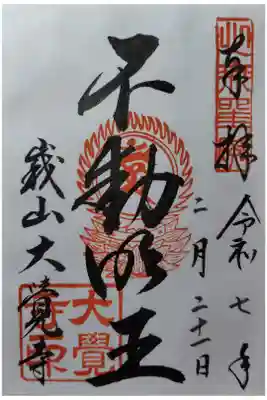 奉拝
令和七年
二月二十一日
不動明王
峩山大覺寺
大覺
寺印